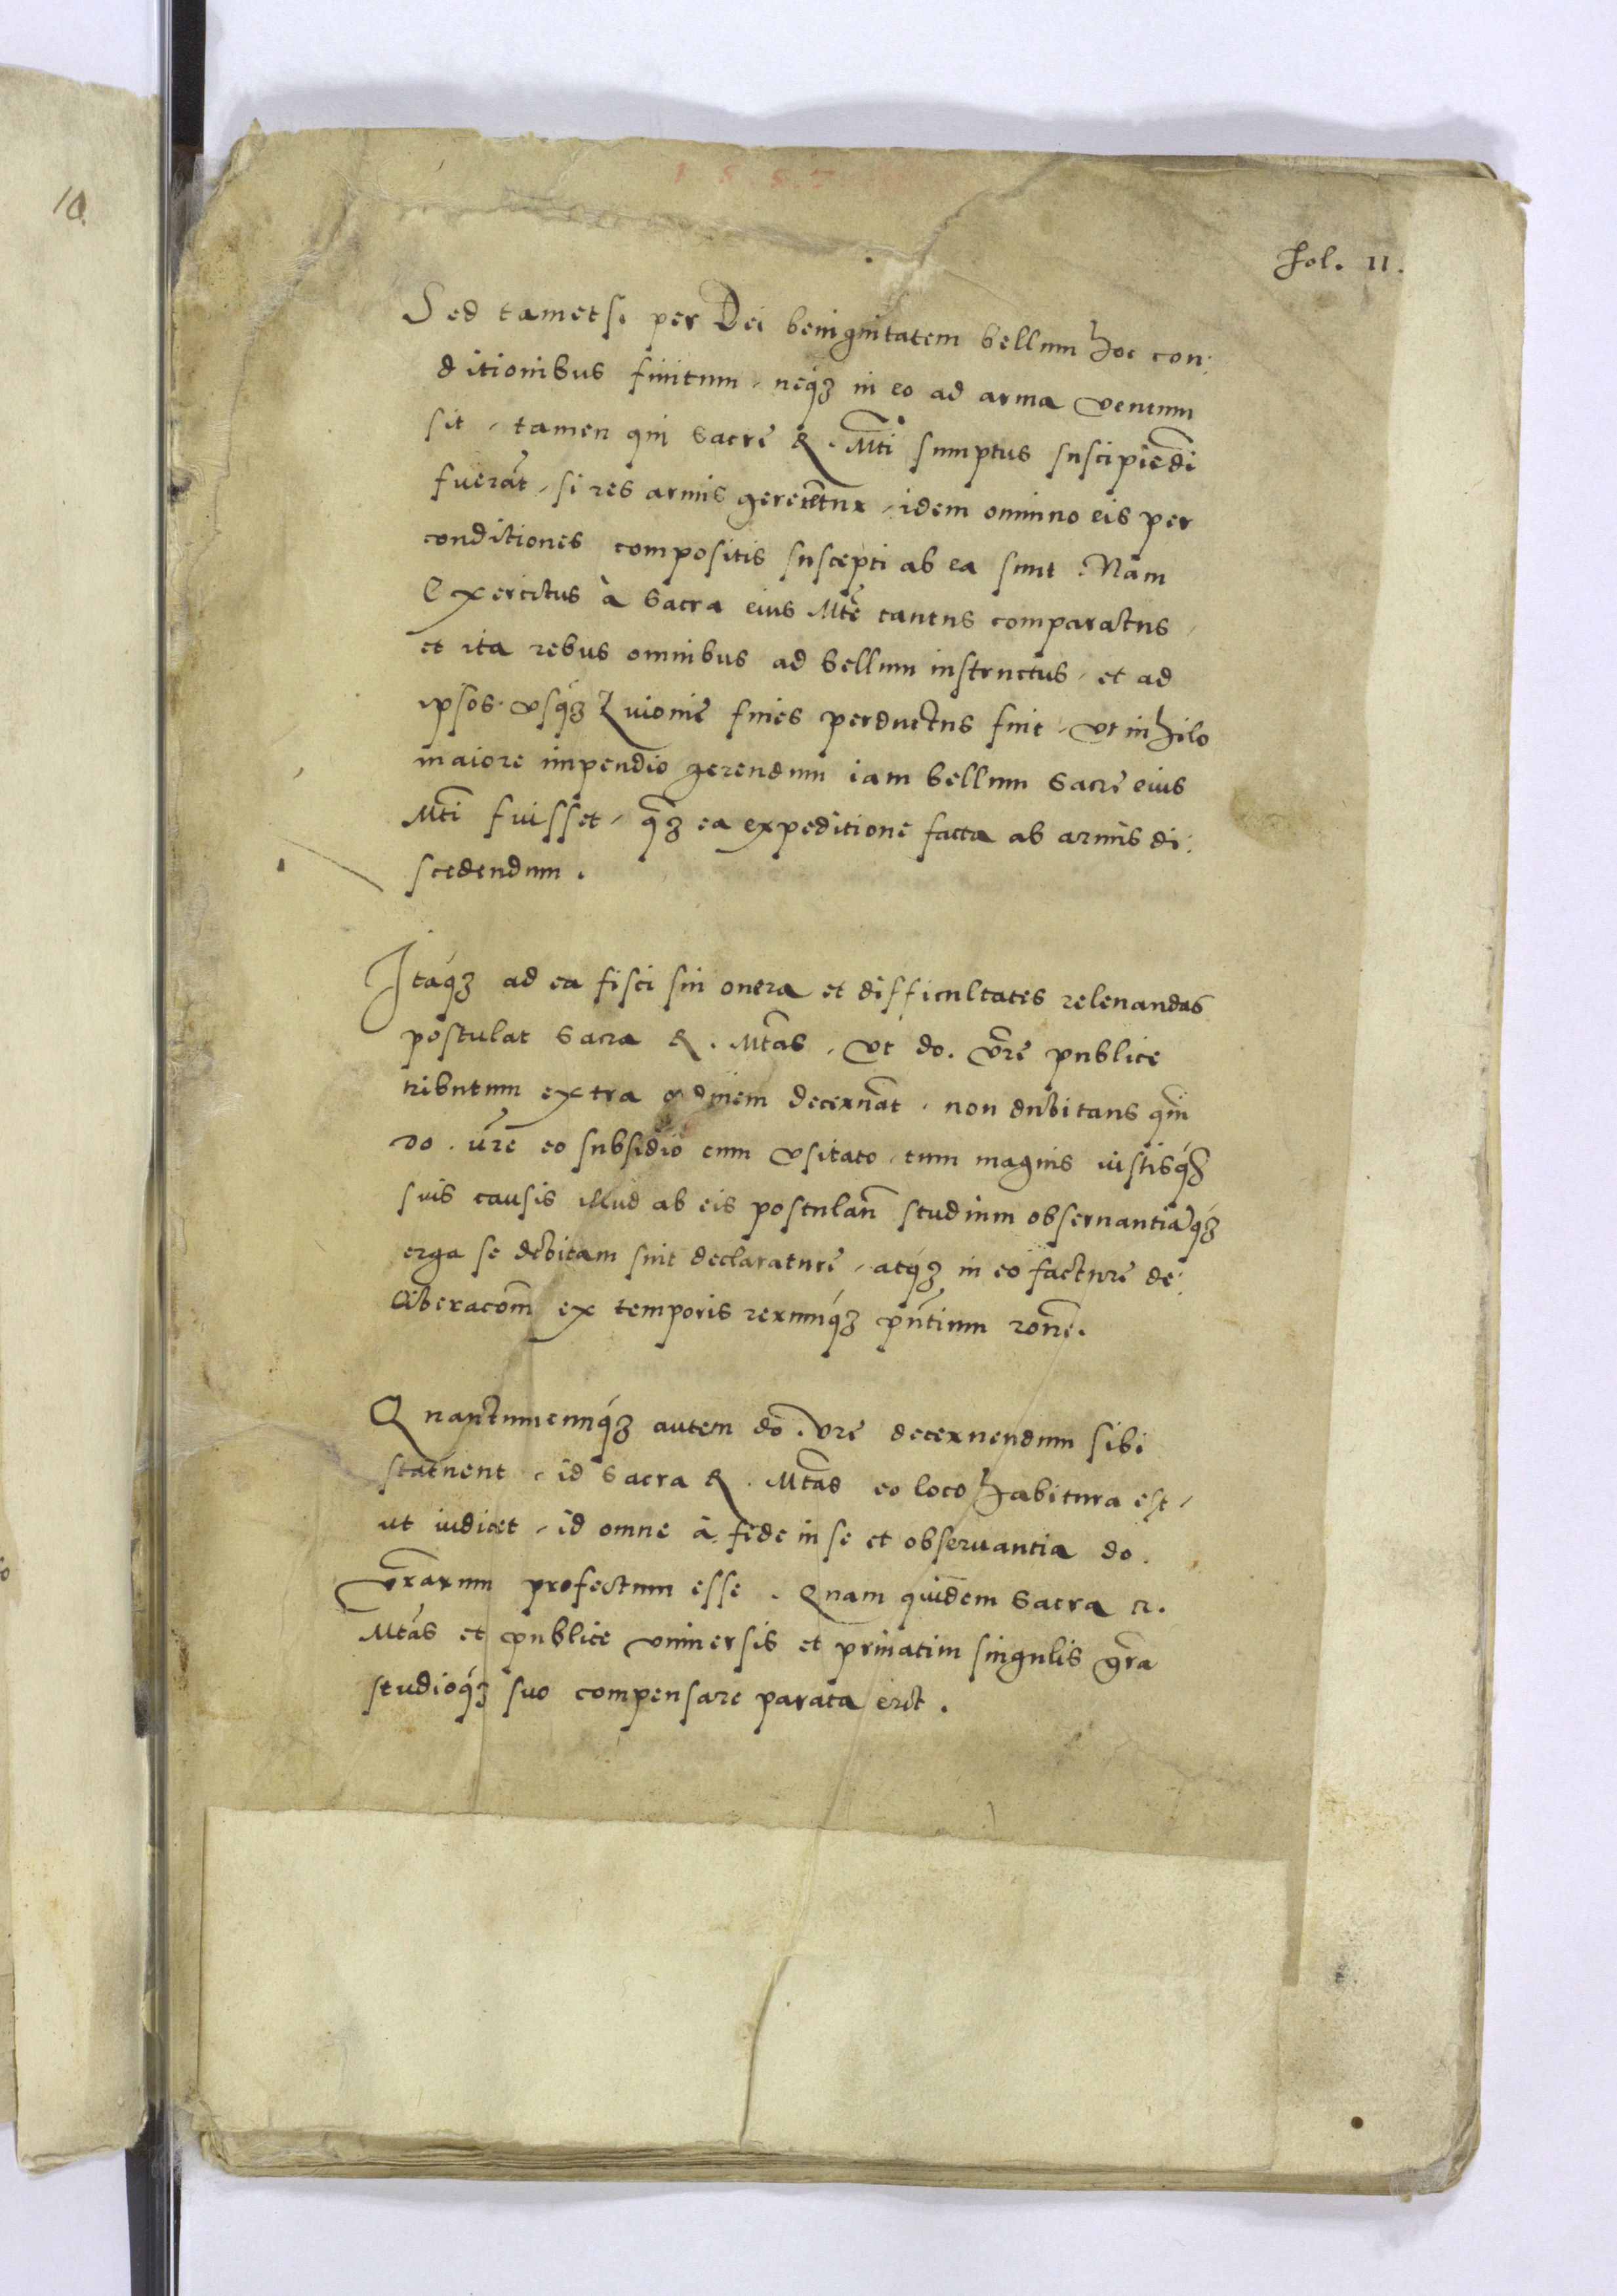 10
1 5 5 7
Fol. 11.
Sed tametsi per Dei benignitatem bellum hoc con:
ditionibus finitum, neq́ꝫ in eo ad arma ventum
sit, tamen qui Sacrę R. Mti̅ sumptus suscipiēdi
fuerāt, si res armis gereretur, idem omnino eis per
conditiones compositis suscepti ab ea sunt. Nam
Exercitus à Sacra eius Mte̅ tantus comparatus,
et ita rebus omnibus ad bellum instructus, et ad
ipsos usq́ꝫ Livonię fines perductus fuit, vt nihilo
maiore impendio gerendum iam bellum Sacrę eius
Mti̅ fuisset, q̅ꝫ ea expeditione facta ab armis di:
scedendum.
Itaq́ꝫ ad ea fisci sui onera et difficultates relevandas
postulat Sacra R. Mta̅s, vt do. vr̅ę publice
tributum extra ordinem decernāt, non dubitans qui̅
do. vr̅ę eo subsidio cum vsitato, tum magnis iustisq́ꝫ
suis causis illud ab eis postulan̅ studium observantiāq́ꝫ
erga se debitam sint declaraturę, atq́ꝫ in eo facturę de:
liberaco̅m ex temporis rerumq́ꝫ pn̅tium ro̅ne.
Quantumcunq́ꝫ autem do. vr̅ę decernendum sibi
statuent, id Sacra R. Mta̅s eo loco habitura est,
ut iudicet, id omne à fide in se et observantia do.
vr̅arum profectum esse. Quam quidem Sacra R.
Mta̅s et publice vniversis et privatim singulis gr̅a
studioq́ꝫ suo compensare parata erit.